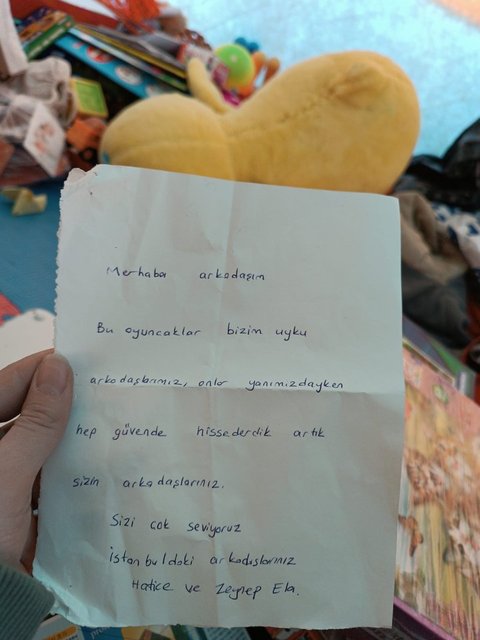 Merhaba arkadaşım
Bu oyuncaklar bizim uyku
arkadaşlarımız, onlar yanımızdayken
hep güvende hissederdik artık
sizin arkadaşlarınız.
Sizi çok seviyoruz
İstanbuldaki arkadaşlarınız
Hatice ve Zeynep Ela.